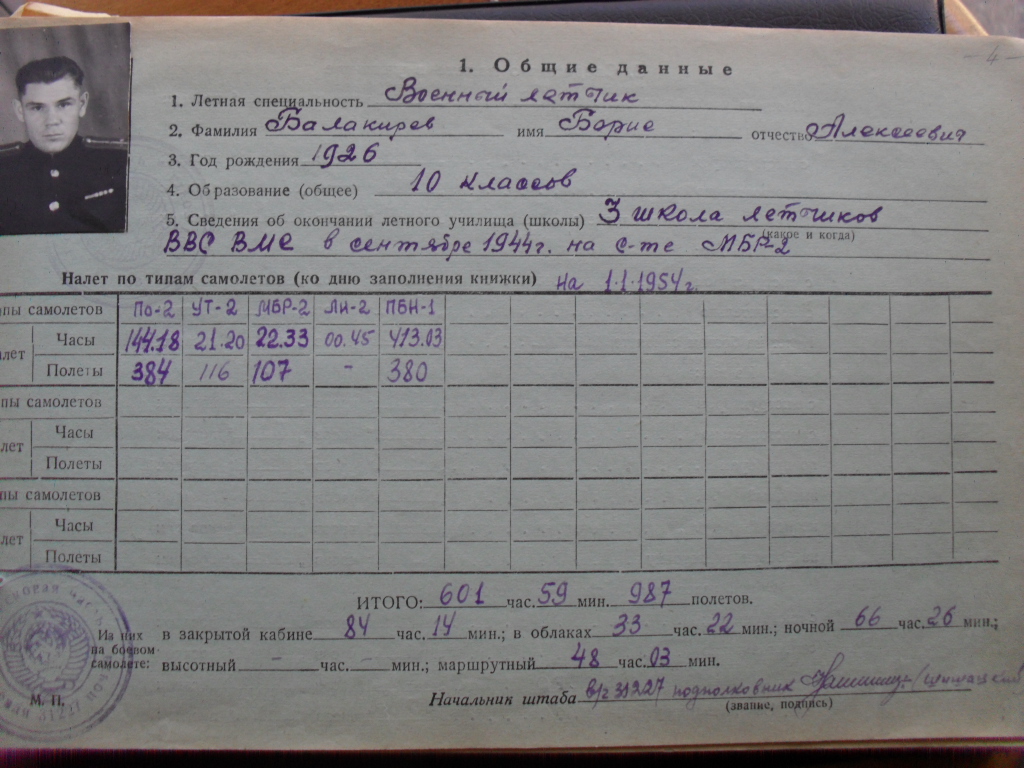 - 4 -
1. Общие данные
1. Летная специальность Военный летчик
2. Фамилия Балакирев имя Борис отчество Алексеевич
3. Год рождения 1926
4. Образование (общее) 10 классов
5. Сведения об окончании летного училища (школы) 3 школа летчиков
(какое и когда)
ВВС ВМС в сентябре 1944г. на с-те МБР-2
Налет по типам самолетов (ко дню заполнения книжки) на 1.1.1954г.
пы самолетов По-2 УТ-2 МБР-2 Ли-2 ПБН-1
лет Часы 144.18 21.20 22.33 00.45 413.03
Полеты 384 116 107 - 380
пы самолетов
лет Часы
Полеты
пы самолетов
лет Часы
Полеты
ИТОГО: 601 час. 59 мин. 987 полетов.
Из них на боевом самолете: в закрытой кабине 84 час. 14 мин.; в облаках 33 час. 22 мин.; ночной 66 час. 26 мин.;
высотный - час. - мин.; маршрутный 48 час. 03 мин.
М. П.
Начальник штаба в/ч 31227 подполковник
(звание, подпись)
31227